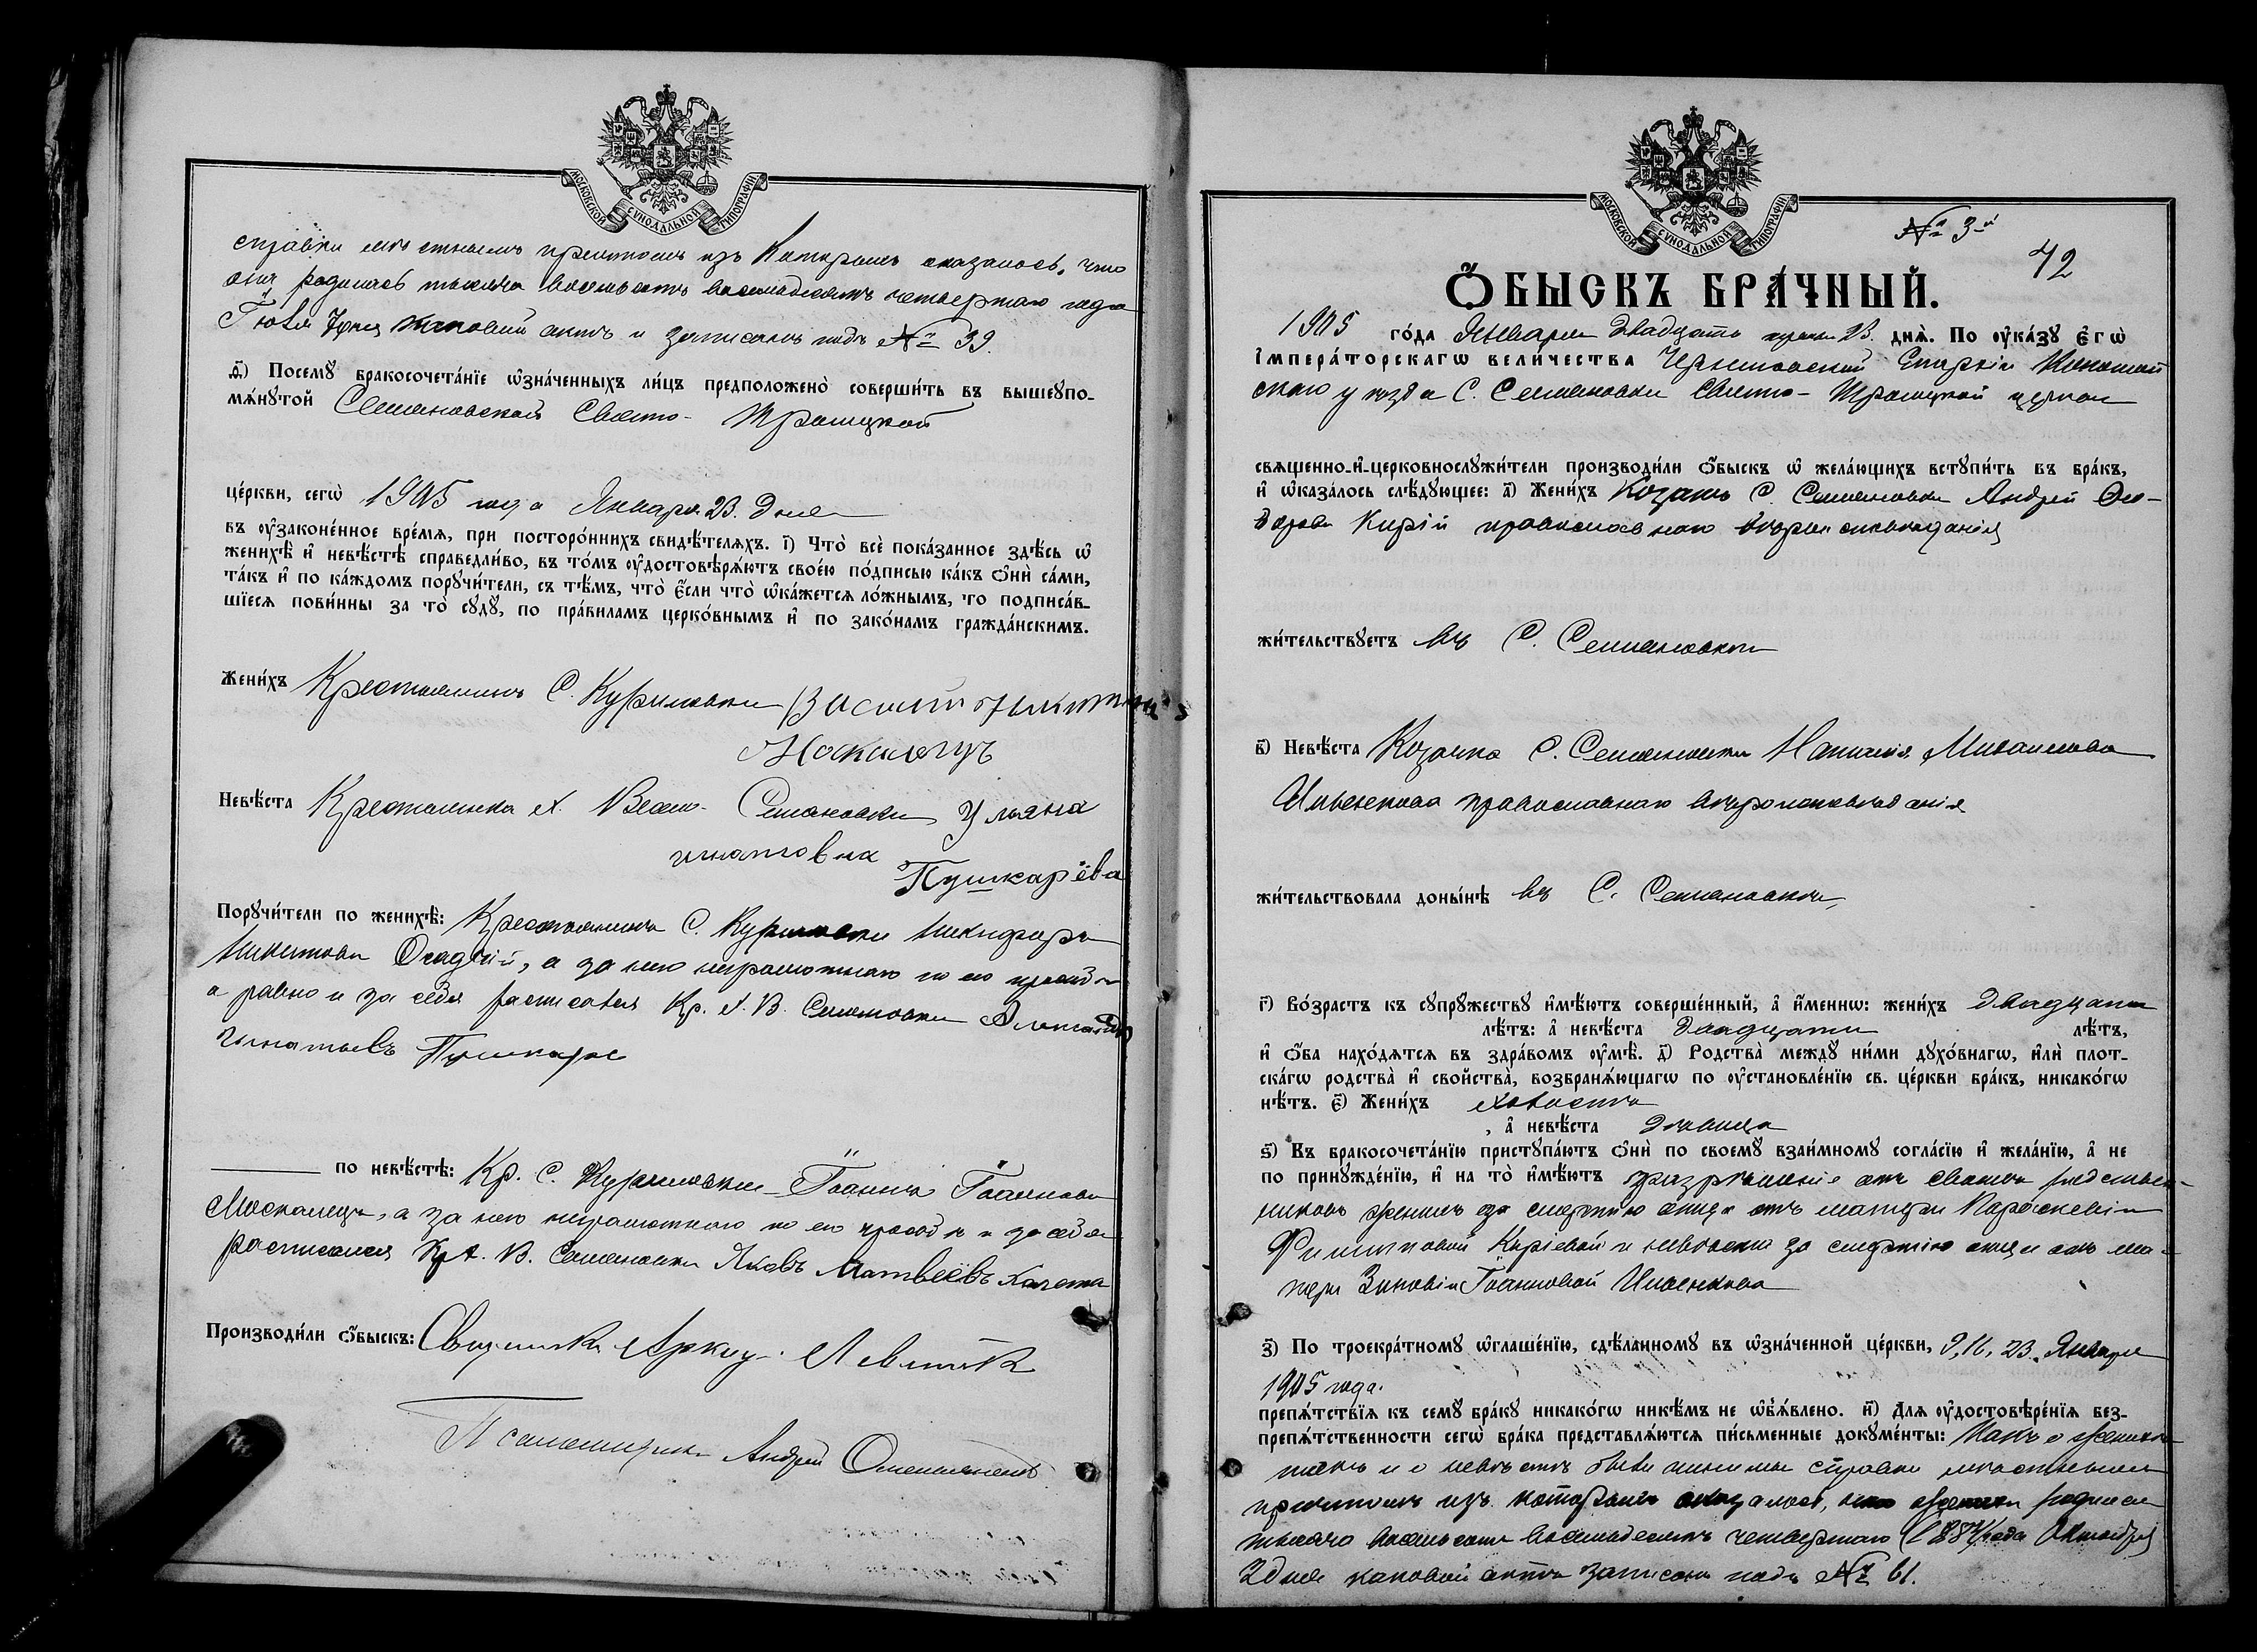 МОСКОВСКОЙ СѴНОДАЛЬНОЙ ТИПОГРАФІИ
справки мѣстнымъ причтомъ изъ которыхъ оказалось, что
она родилась тысяча восемьсотъ восемьдесятъ четвертаго года
Іюля 7 дня каковый актъ и записанъ подъ № 39.
ѳ҃) Посемꙋ бракосочета́нїе ѡ҆зна́ченныхъ ли́цъ предположено̀ соверши́ть въ вышеꙋпо-
мѧ́нꙋтой Семеновской Свято- Троицкой
це́ркви, сегѡ̀ 1905 года Января 23. дня
въ ᲂу҆законе́нное вре́мѧ, при посторо́ннихъ свидѣ́телѧхъ. і҃) Что̀ всѐ пока́занное здѣ́сь ѡ҆
женихѣ̀ и҆ невѣ́стѣ справедли́во, въ то́мъ ᲂу҆достовѣрѧ́ютъ свое́ю по́дписью ка́къ ѻ҆нѝ са́ми,
та́къ и҆ по ка́ждомъ порꙋчи́тели, съ тѣ́мъ, что̀ є҆́сли что̀ ѡ҆ка́жетсѧ ло́жнымъ, то подписа́в-
шїесѧ пови́нны за то̀ сꙋдꙋ̀, по пра́виламъ церко́внымъ и҆ по зако́намъ гражда́нскимъ.
Жени́хъ Крестьянинъ С. Куриловки
Москалець
Невѣ́ста Крестьянка х. Семеновки Ульяна
игнатовна
Пушкарёва
Порꙋчи́тели по женихѣ̀: Крестьянинъ С. Куриловки Никифоръ
Никитовъ Осадчій, а за него неграмотнаго по его просьбѣ
а равно и за себя расписался Кр. х. В. Семеновки Александр
Игнатьевъ Пушкарь
по невѣ́стѣ: Кр. С. Куриловки Іоаннъ Іоанновъ
Москалець, а за него неграмотнаго по его просьбѣ и за себя
расписался Кр. х. В. Семеновки Яковъ Матвѣевъ
Производи́ли ѻ҆́быскъ: Священникъ Левитскій
Псаломщикъ Андрей
МОСКОВСКОЙ СѴНОДАЛЬНОЙ ТИПОГРАФІИ
№ 3-й
42
Ѻ҆́БЫСКЪ БРА́ЧНЫЙ.
1905 го́да Января двадцать третьяго 23. днѧ̀. По ᲂу҆ка́зꙋ є҆гѡ̀
і҆мпера́торскагѡ вели́чества Черниговской Епархіи Конотоп
скаго уѣзда С. Семеновки Свято- Троицкой церкви
свѧщенно-и҆-церковнослꙋжи́тели производи́ли ѻ҆́быскъ ѡ҆ жела́ющихъ встꙋпи́ть въ бра́къ,
и҆ ѡ҆каза́лось слѣ́дꙋющее: а҃) Жени́хъ Козакъ С. Семеновки Андрей Ѳео-
доровъ Кирій православнаго вѣроисповѣданія
жи́тельствꙋетъ въ С. Семеновкѣ
в҃) Невѣ́ста Козачка С. Семеновки Наталія Михайлова
Ильенкова православнаго вѣроисповѣданія
жи́тельствовала доны́нѣ въ С. Семеновкѣ
г҃) Во́зрастъ къ сꙋпрꙋ́жествꙋ и҆мѣ́ютъ соверше́нный, а҆ и҆́меннѡ: жени́хъ двадцати
лѣ́тъ: а҆ невѣ́ста двадцати лѣ́тъ,
и҆ ѻ҆́ба нахо́дѧтсѧ въ здра́вомъ ᲂу҆мѣ̀. д҃) Родства̀ междꙋ̀ ни́ми дꙋхо́внагѡ, и҆лѝ плот-
ска́гѡ родства̀ и҆ свойства̀, возбранѧ́ющагѡ по ᲂу҆становле́нїю св. це́ркви бра́къ, никако́гѡ
нѣ́тъ. є҃) Жени́хъ холостъ
, а҆ невѣ́ста дѣвица
ѕ҃) Въ бракосочета́нїю пристꙋпа́ютъ ѻ҆нѝ по своемꙋ̀ взаи́мномꙋ согла́сїю и҆ жела́нїю, а҆ не
по принꙋжде́нїю, и҆ на то̀ и҆мѣ́ютъ разрѣшеніе отъ своихъ родствен-
никовъ женихъ за смертію отца отъ матери Параскевіи
Филипповой Киріевой и невѣста за смертію отца отъ ма-
тери Зиновіи Іоанновой Ильенкова
з҃) По троекра́тномꙋ ѡ҆глаше́нїю, сдѣ́ланномꙋ въ ѡ҆зна́ченной це́ркви, 9, 16, 23. Января
1905 года.
препѧ́тствїѧ къ семꙋ̀ бра́кꙋ никако́гѡ никѣ́мъ не ѡ҆б̾ѧ́влено. и҃) Длѧ ᲂу҆достовѣре́нїѧ без-
препѧ́тственности сегѡ̀ бра́ка представлѧ́ютсѧ пи́сьменные докꙋме́нты: Какъ о женихѣ
такъ и о невѣстѣ справки мѣстнымъ
причтомъ изъ которыхъ оказалось, что женихъ родился
тысяча восемьсотъ восемьдесятъ четвертаго (1884) года Октября
2 дня каковый актъ записанъ подъ № 61.